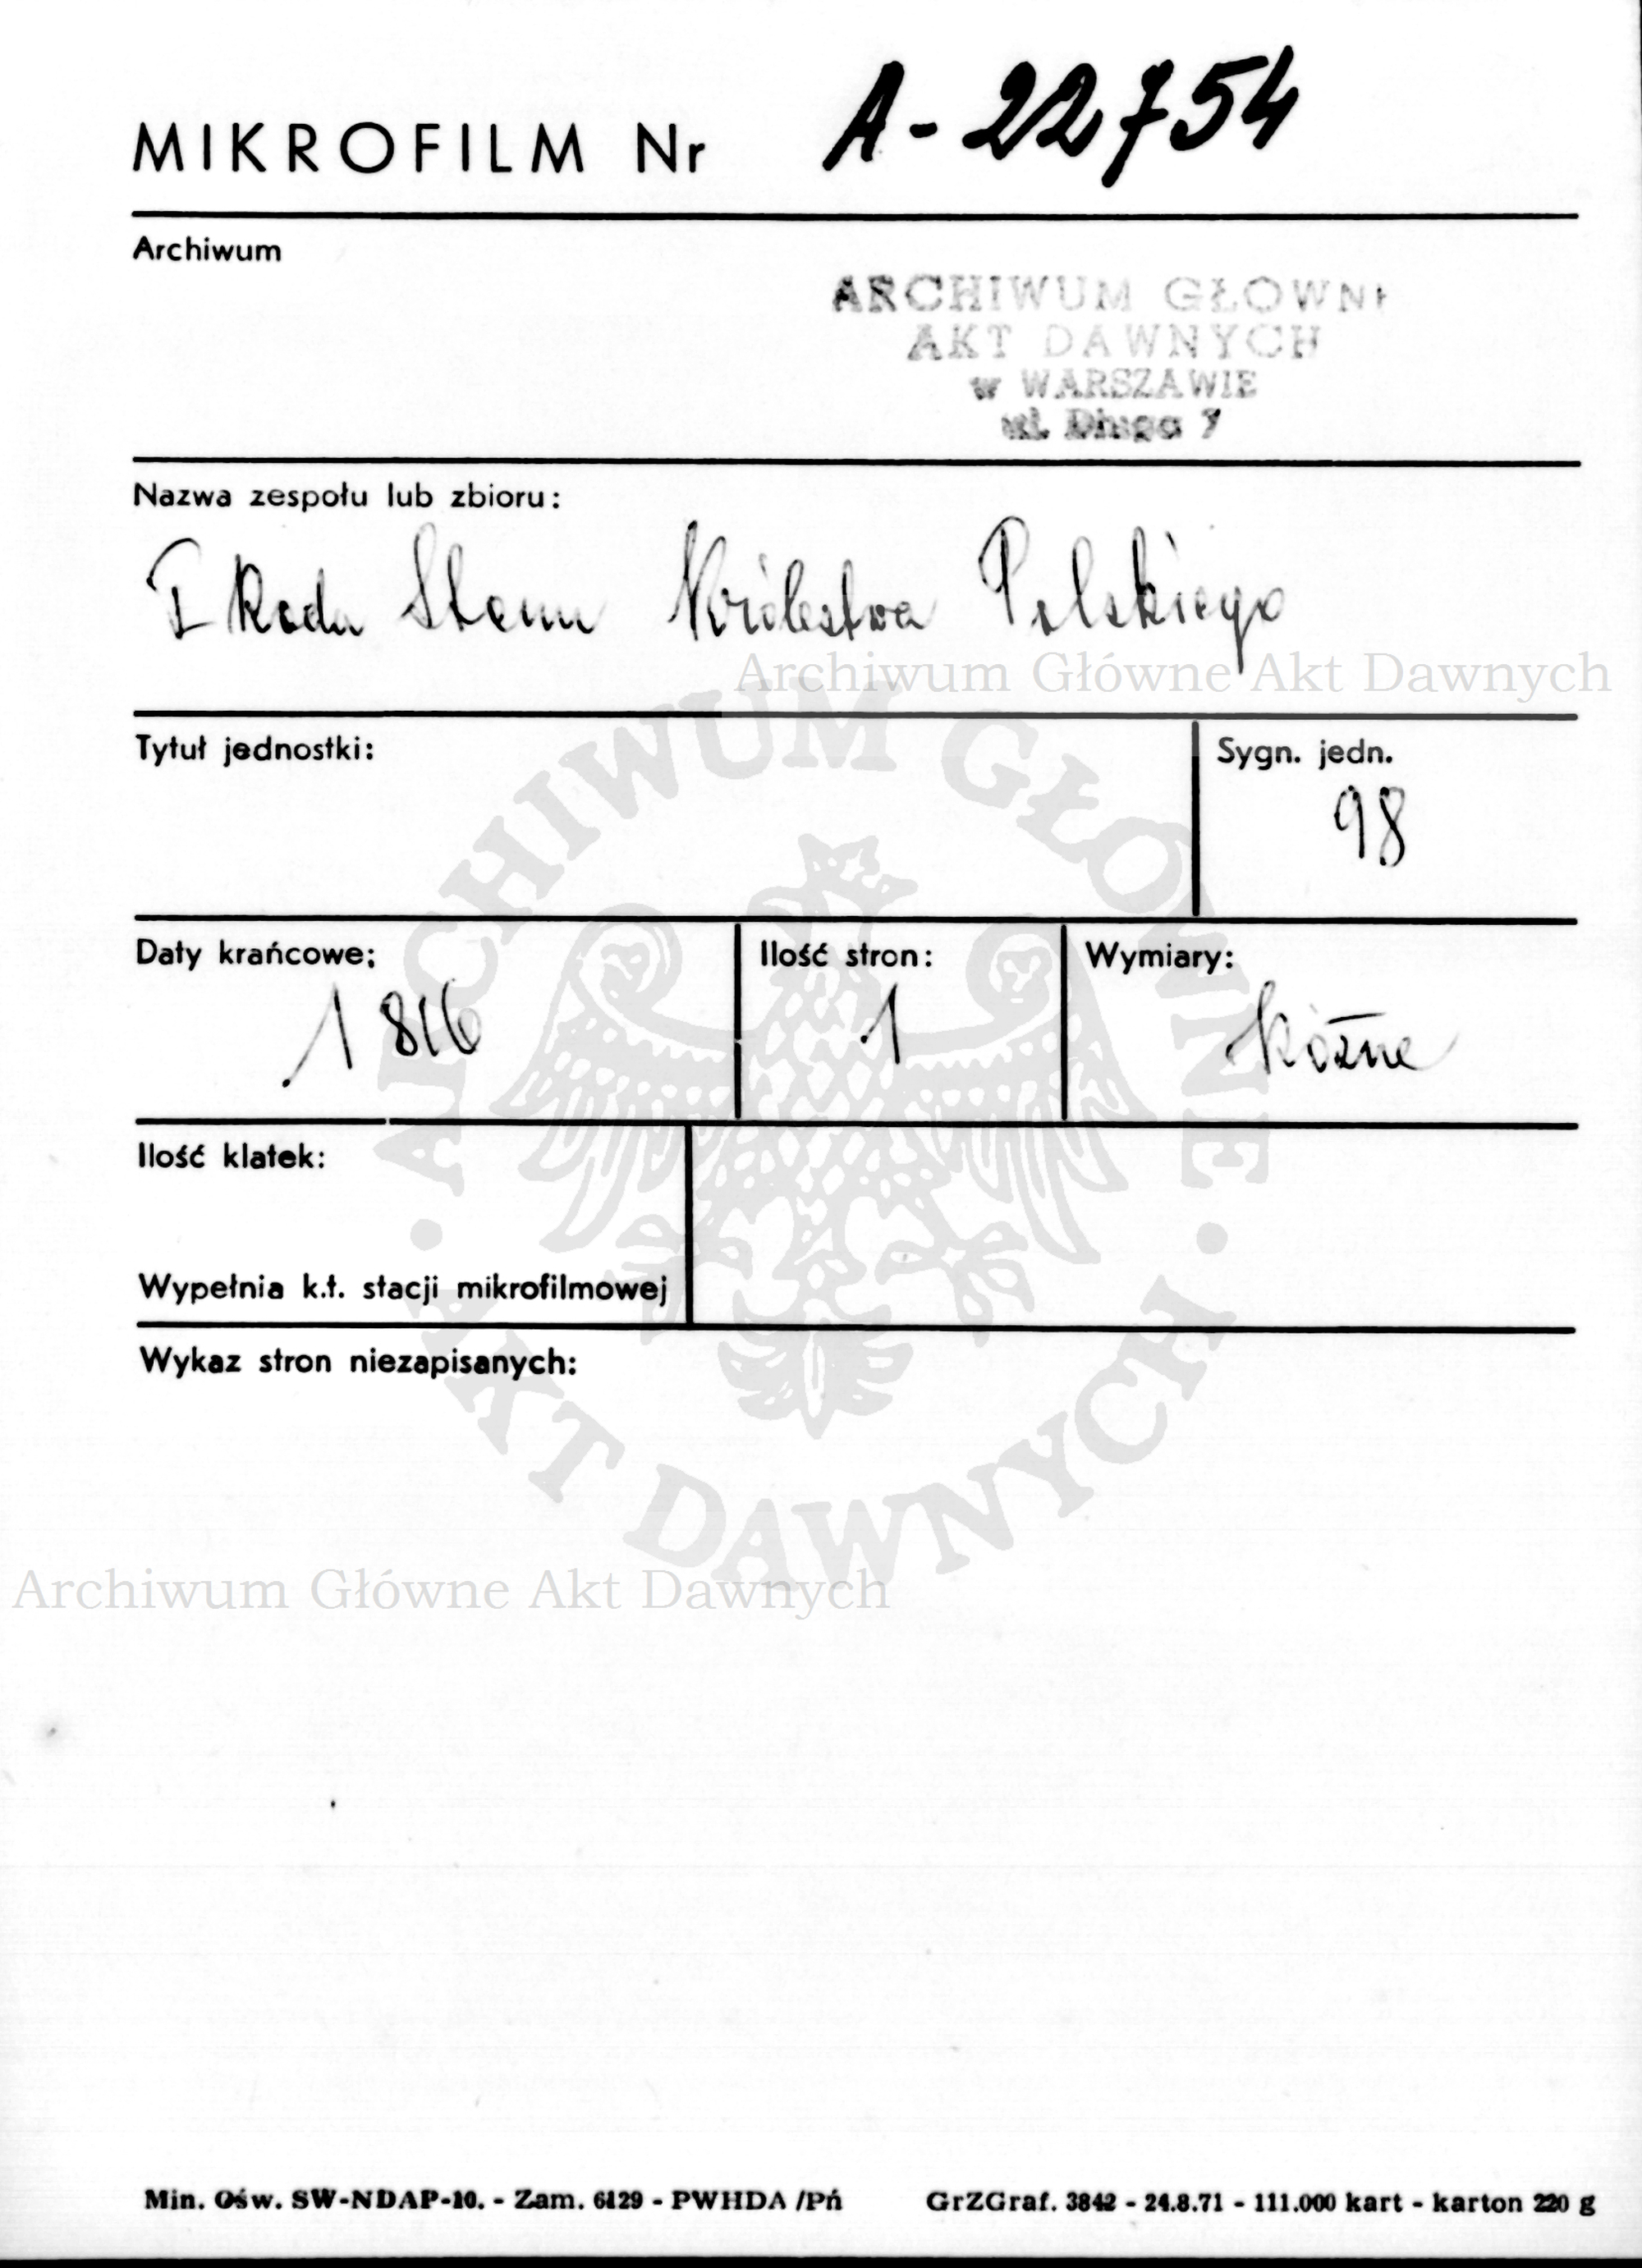 MIKROFILM Nr A-22754
Archiwum
ARCHIWUM GŁÓWNE
AKT DAWNYCH
w WARSZAWIE
ul. Długa 7
Nazwa zespołu lub zbioru:
I Rada Stanu Królestwa Polskiego
Archiwum Główne Akt Dawnych
Tytuł jednostki:
Sygn. jedn.
98
ARCHIWUM GŁÓWNE
Daty krańcowe:
1816
Ilość stron:
1
Wymiary:
Różne
Ilość klatek:
Wypełnia k.t. stacji mikrofilmowej
Wykaz stron niezapisanych:
AKT DAWNYCH
Archiwum Główne Akt Dawnych
Min. Ośw. SW-NDAP-10. - Zam. 6129 - PWHDA /Pń GrZGraf. 3842 - 24.8.71 - 111.000 kart - karton 220 g